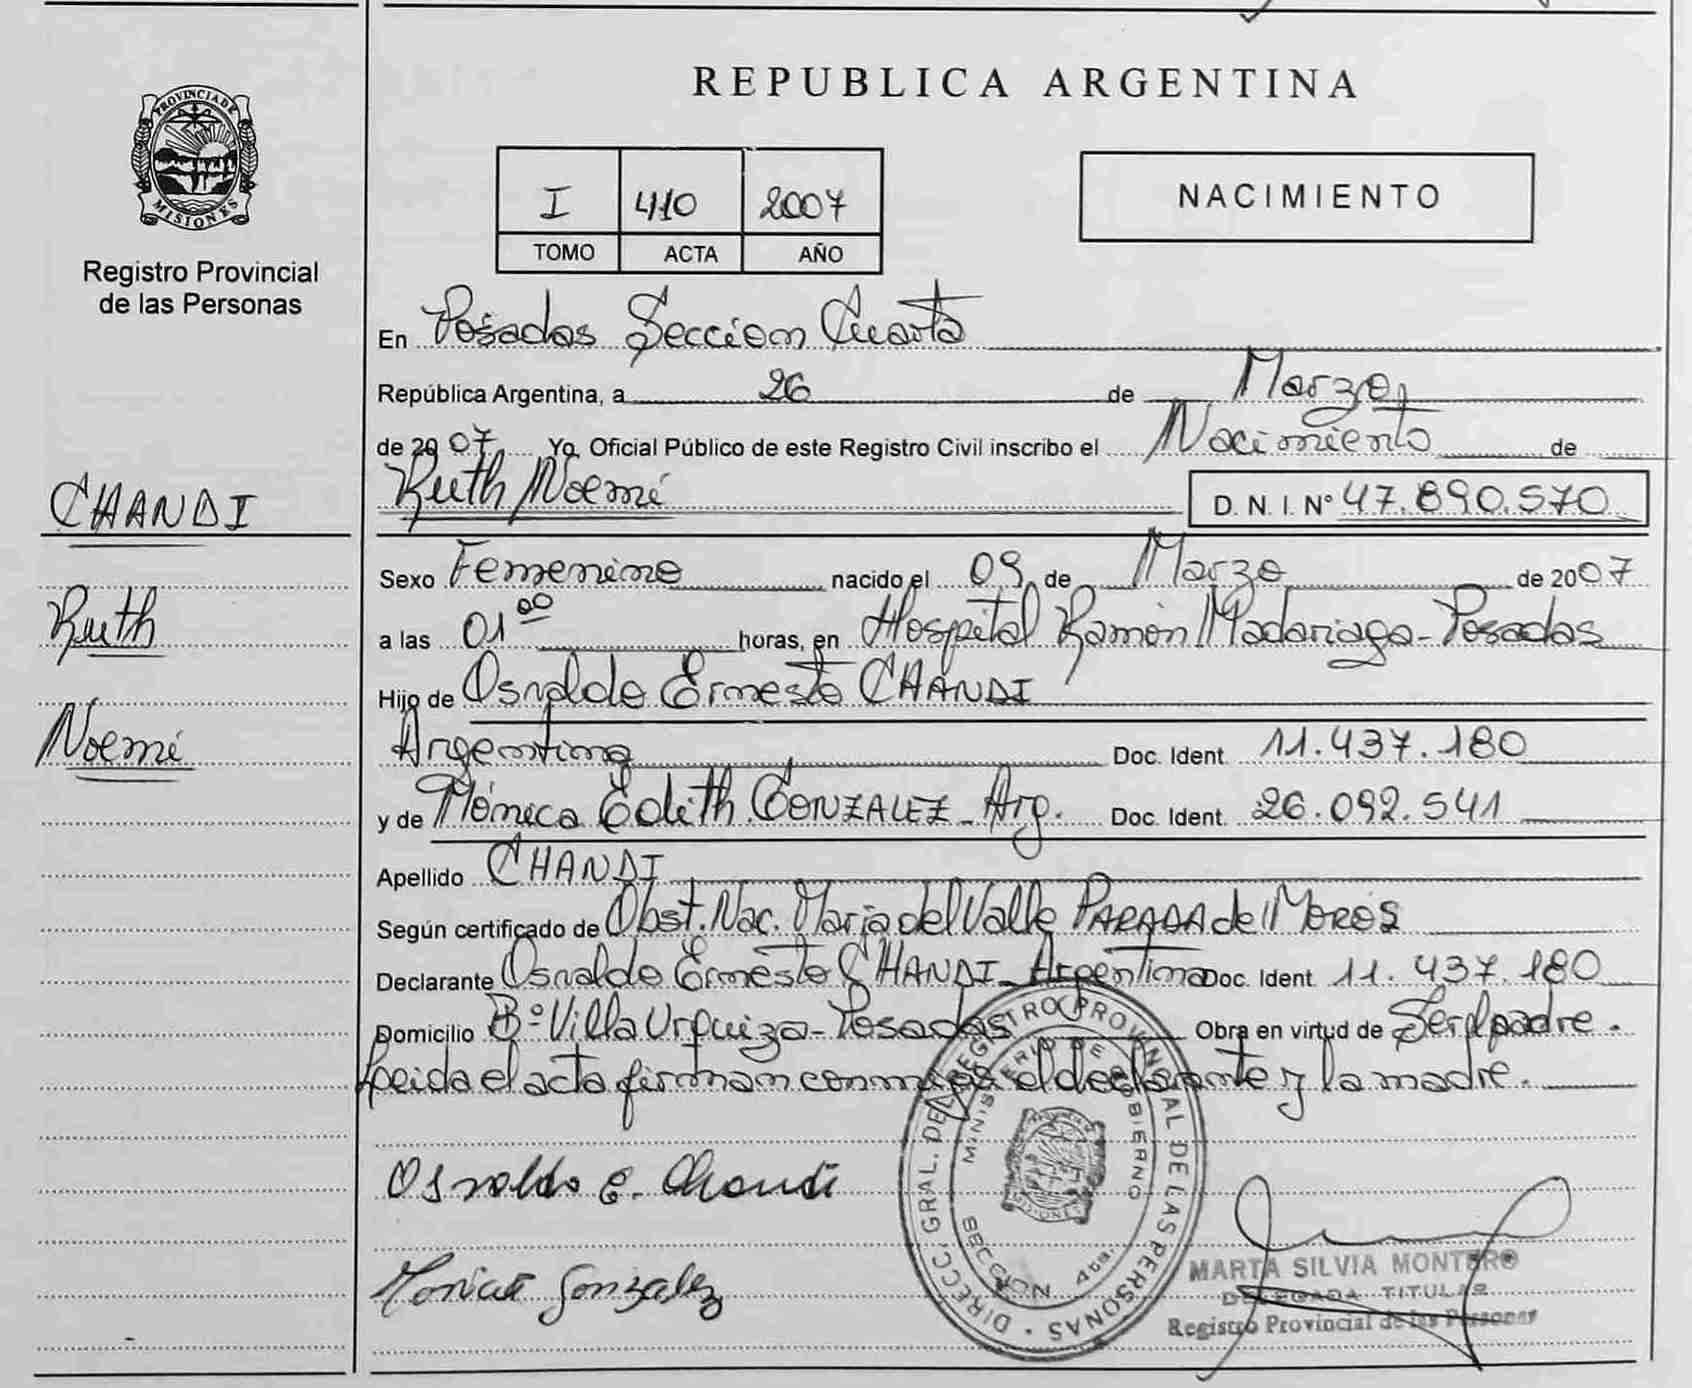 PROVINCIA DE
MISIONES
Registro Provincial
de las Personas
CHANDI
Ruth
Noemí
REPUBLICA ARGENTINA
I 410 2007
TOMO ACTA AÑO
NACIMIENTO
En Posadas Sección Cuarta
República Argentina, a 26 de Marzo
de 2007 Yo, Oficial Público de este Registro Civil inscribo el Nacimiento de
Ruth Noemí D. N. I. Nº 47.890.570
Sexo Femenino nacido el 09 de Marzo de 2007
a las 01 00 horas, en Hospital Ramón Madariaga - Posadas
Hijo de Osvaldo Ernesto CHANDI
Argentina Doc. Ident. 11.437.180
y de Mónica Edith GONZALEZ - Arg. Doc. Ident. 26.092.541
Apellido CHANDI
Según certificado de Obst. Nac. Maria del Valle PARADA de MOROS
Declarante Osvaldo Ernesto CHANDI - Argentina Doc. Ident. 11.437.180
Domicilio Bº Villa Urquiza - Posadas Obra en virtud de Ser el padre.
Leida el acta firman conmigo el declarante y la madre.
Osvaldo E. Chandi
Monica Gonzalez
DIRECC. GRAL. DEL REGISTRO PROVINCIAL DE LAS PERSONAS
MINISTERIO DE GOBIERNO
SECCION 4ta.
MISIONES
MARTA SILVIA MONTERO
DELEGADA TITULAR
Registro Provincial de las Personas